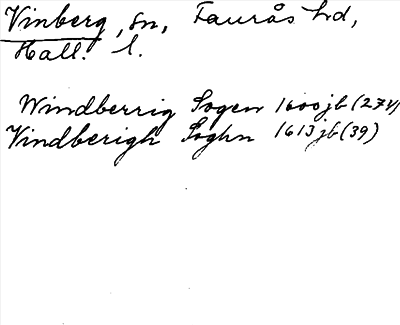 Vinberg, sn, Faurås hd,
Hall. l.
Windberrig Sogen 1600jb (274)
Vindberigh Soghn 1613jb (39)